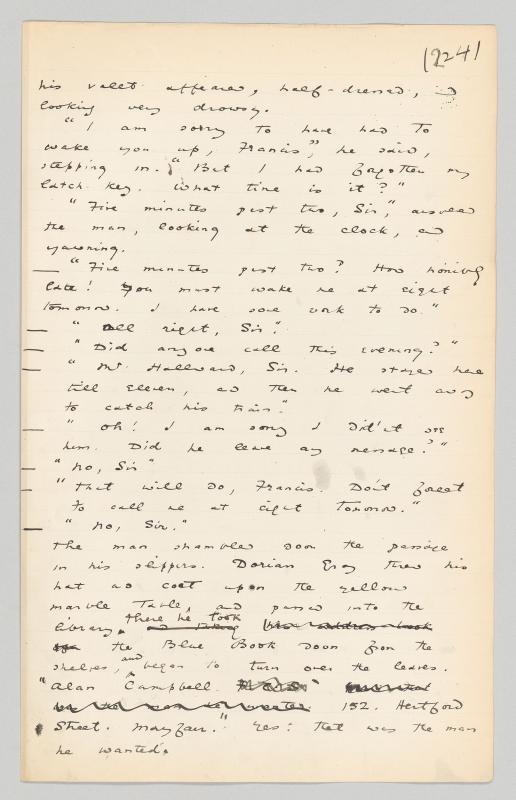 224
his valet appeared, half-dressed, and
looking very drowsy.
"I am sorry to have had to
wake you up, Francis," he said,
stepping in. "But I had forgotten my
latch-key. What time is it?"
"Five minutes past two, Sir," answered
the man, looking at the clock, and
yawning.
"Five minutes past two? How horribly
late! You must wake me at eight
tomorrow. I have some work to do."
"All right, Sir."
"Did any one call this evening?"
"Mr. Hallward, Sir. He stayed here
till eleven, and then he went away
to catch his train."
"Oh! I am sorry I didn't see
him. Did he leave any message?"
"No, Sir"
"That will do, Francis. Don't forget
to call me at eight tomorrow."
"No, Sir."
The man shambled down the passage
in his slippers. Dorian Gray threw his
hat and coat upon the yellow
marble table, and passed into the
library. there he took
the Blue Book down from the
shelves, and began to turn over the leaves.
"Alan Campbell. 152. Hertford
Street. Mayfair." Yes: that was the man
he wanted.